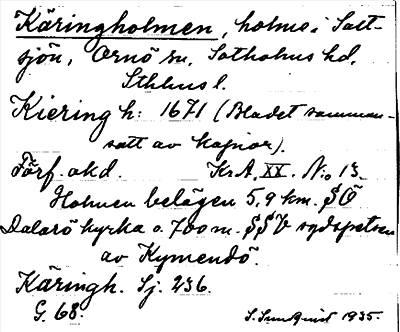 Käringholmen, holme i Salt-
sjön, Ornö sn, Sotholms hd,
Sthlms l.
Kieringh: 1671 (Bladet samman-
satt av kopior).
Förf. okd. KrA. XX. No 13.
Holmen belägen 5,9 km. SÖ
Dalarö kyrka o. 700 m. SSV sydspetsen
av Kymendö.
Käringh. Sj. 236.
G. 68. S. Sundquist 1935.